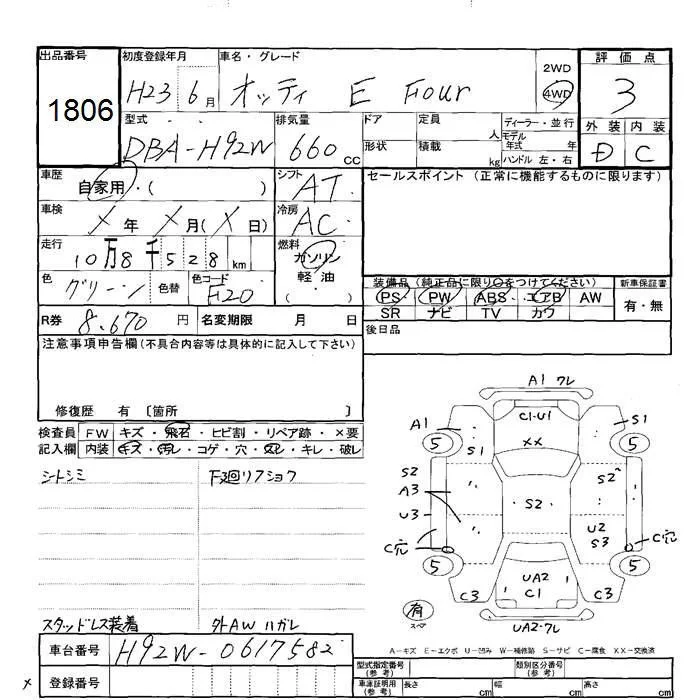 出品番号 初度登録年月 車名・グレード 評価点
1806 H23 6月 オッティ E Four 2WD 4WD 3
型式 排気量 ドア 定員 人 ディーラー・並行 外装 内装
DBA-H92W 660cc 形状 積載 kg モデル年式 年 ハンドル 左・右 D C
車歴 自家用・( ) シフト AT セールスポイント (正常に機能するものに限ります)
車検 X 年 X 月(X 日) 冷房 AC
走行 10万8千528km 燃料 ガソリン・軽油
色 グリーン 色替 色コード F20 装備品 (純正品に限り○をつけてください) 新車保証書
PS PW ABS エアB AW 有・無
SR ナビ TV カワ
R券 8,670円 名変期限 月 日 後日品
注意事項申告欄(不具合内容等は具体的に記入して下さい)
修復歴 有 〔箇所 〕
検査員 FW キズ・飛石・ヒビ割・リペア跡・×要
記入欄 内装 キズ・汚レ・コゲ・穴・スレ・キレ・破レ
シートシミ
スタッドレス装着 外AWハガレ
A1 ワレ
C1・U1
A1 S1
5 XX 5
S1
S2 S2
A3 S2
U3 U2
S3
C穴 C穴
5 5
UA2
C3 C1 C3
有
スペア
UA2・ワレ
A-キズ E-エクボ U-凹み W-補修跡 S-サビ C-腐食 XX-交換済
車台番号 H92W-0617582
登録番号
型式指定番号(参考) 類別区分番号(参考)
車庫証明用(参考) 長さ cm 幅 cm 高さ cm